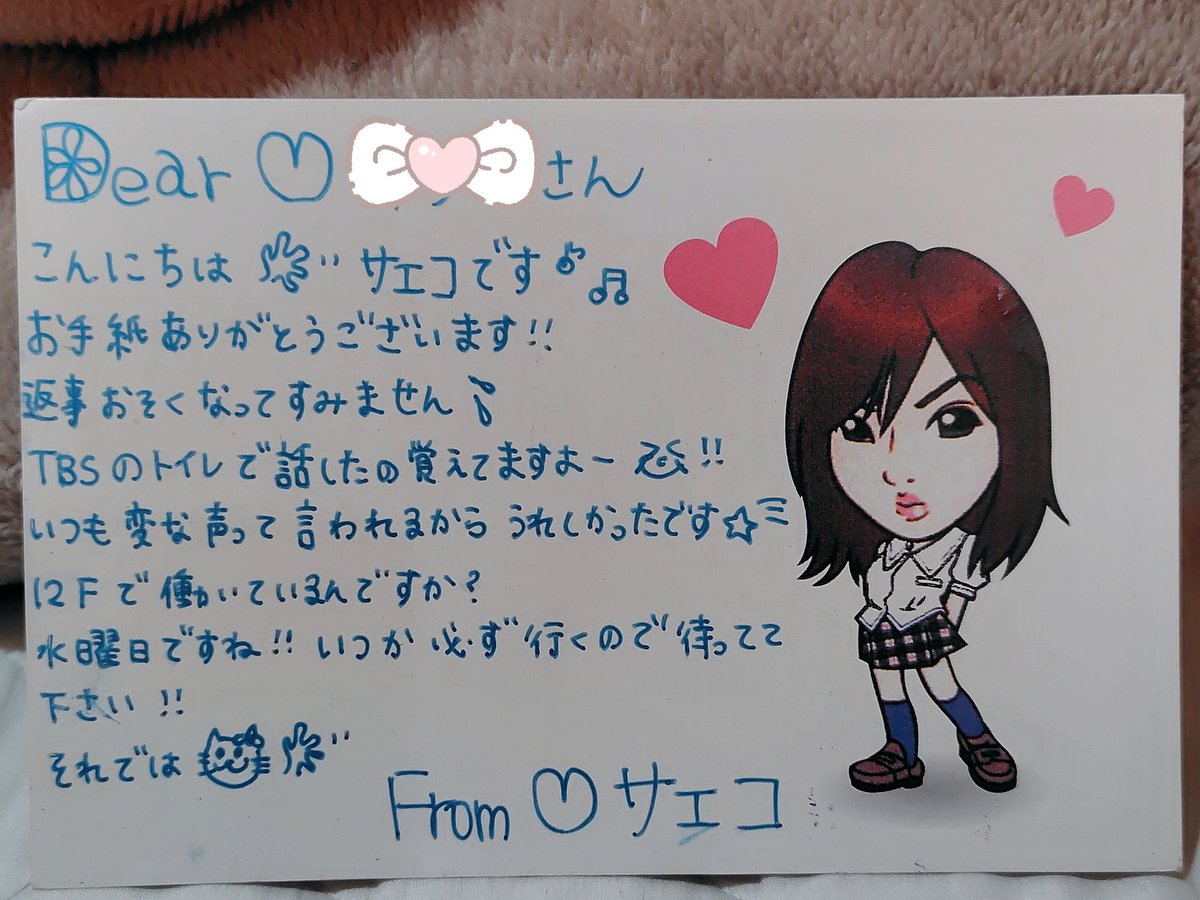 Dear ♡ さん
こんにちは サエコです♪♫
お手紙ありがとうございます!!
返事おそくなってすみません
TBSのトイレで話したの覚えてますよー!!
いつも変な声って言われるからうれしかったです☆
12Fで働いているんですか?
水曜日ですね!!いつか必ず行くので待ってて
下さい!!
それでは
From ♡ サエコ